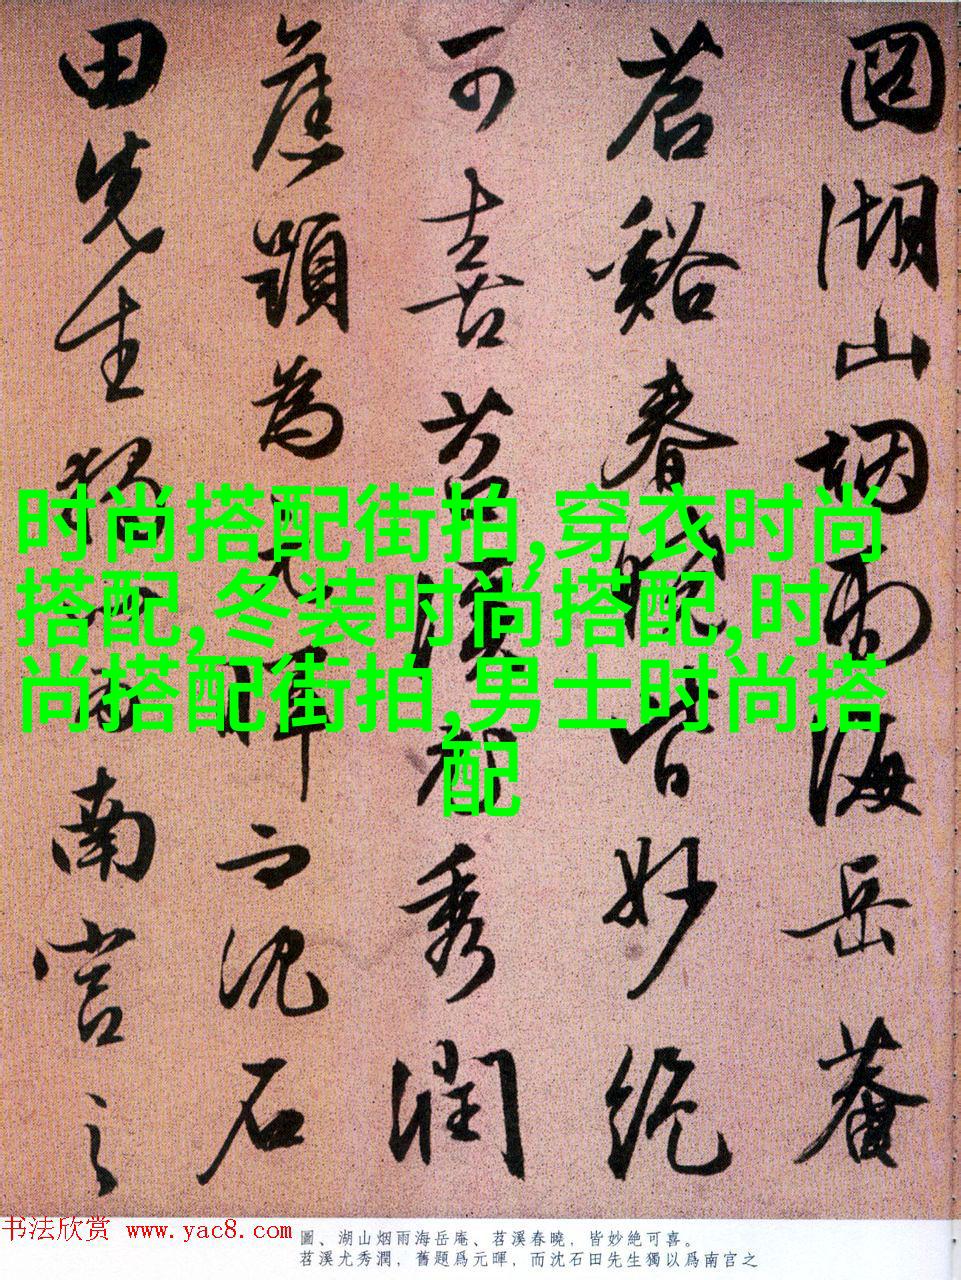 圖湖山烟雨海岳菴
苕谿春曉皆妙絶
可喜苕溪尤秀潤
舊題為元暉而沈石
田先生獨以為南宫之
时尚搭配街拍,穿衣时尚
搭配,冬装时尚搭配,时
尚搭配街拍,男士时尚搭
配
书法欣赏 www.yac8.com
圖、湖山烟雨海岳庵、苕溪春曉，皆妙絶可喜。
苕溪尤秀潤，舊題爲元暉，而沈石田先生獨以爲南宫之